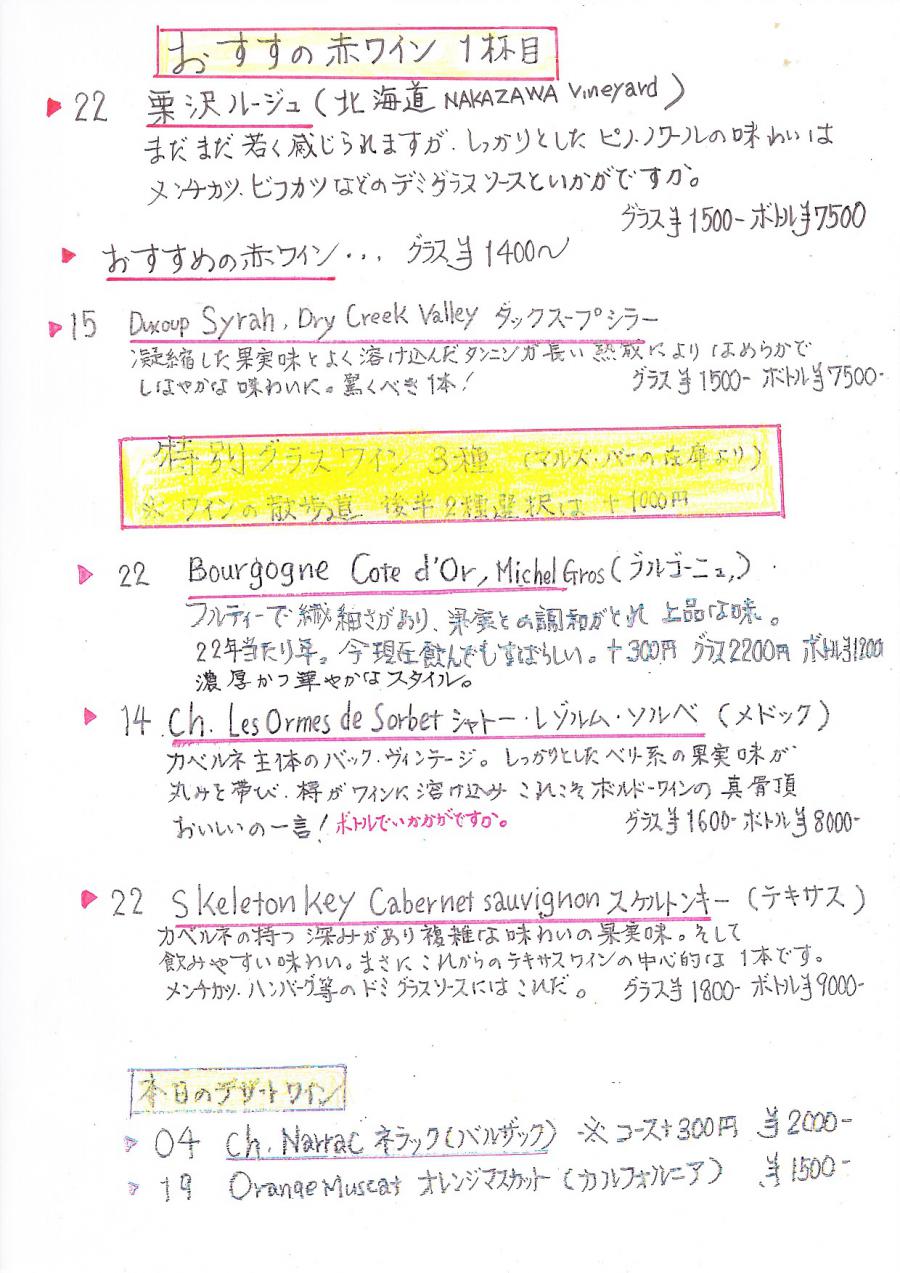 おすすの赤ワイン 1杯目
22 栗沢ルージュ(北海道 NAKAZAWA Vineyard)
まだまだ若く感じられますが、しっかりとしたピノ・ノワールの味わいは
メンチカツ、ビフカツなどのデミグラスソースといかがですか。
グラス¥1500- ボトル¥7500
おすすめの赤ワイン・・・ グラス¥1400〜
15 Duxoup Syrah, Dry Creek Valley ダックスープシラー
凝縮した果実味とよく溶け込んだタンニンが長い熟成によりなめらかで
しなやかな味わいに。驚くべき1本!
グラス¥1500- ボトル¥7500-
特別グラスワイン 3種 (マルズ・バーの在庫より)
※ ワインの散歩道 後半2種選択は +1000円
22 Bourgogne Cote d'Or, Michel Gros(ブルゴーニュ)
フルティーで繊細さがあり、果実との調和がとれ 上品な味。
22年当たり年。今現在飲んでもすばらしい。+300円 グラス2200円 ボトル¥1200
濃厚かつ華やかなスタイル。
14 Ch. Les Ormes de Sorbet シャトー・レゾルム・ソルベ (メドック)
カベルネ主体のバック・ヴィンテージ。しっかりとしたベリー系の果実味が
丸みを帯び、樽がワインに溶け込み これこそボルドーワインの真骨頂
おいしいの一言! ボトルでいかかがですか。
グラス¥1600- ボトル¥8000-
22 Skeleton Key Cabernet sauvignon スケルトンキー (テキサス)
カベルネの持つ 深みがあり複雑な味わいの果実味。そして
飲みやすい味わい。まさにこれからのテキサスワインの中心的な1本です。
メンチカツ、ハンバーグ等のドミグラスソースにはこれだ。 グラス¥1800- ボトル¥9000-
本日のデザートワイン
04 Ch. Narrac ネラック(バルザック) ※ コース+300円 ¥2000-
19 Orange Muscat オレンジマスカット (カルフォルニア) ¥1500-